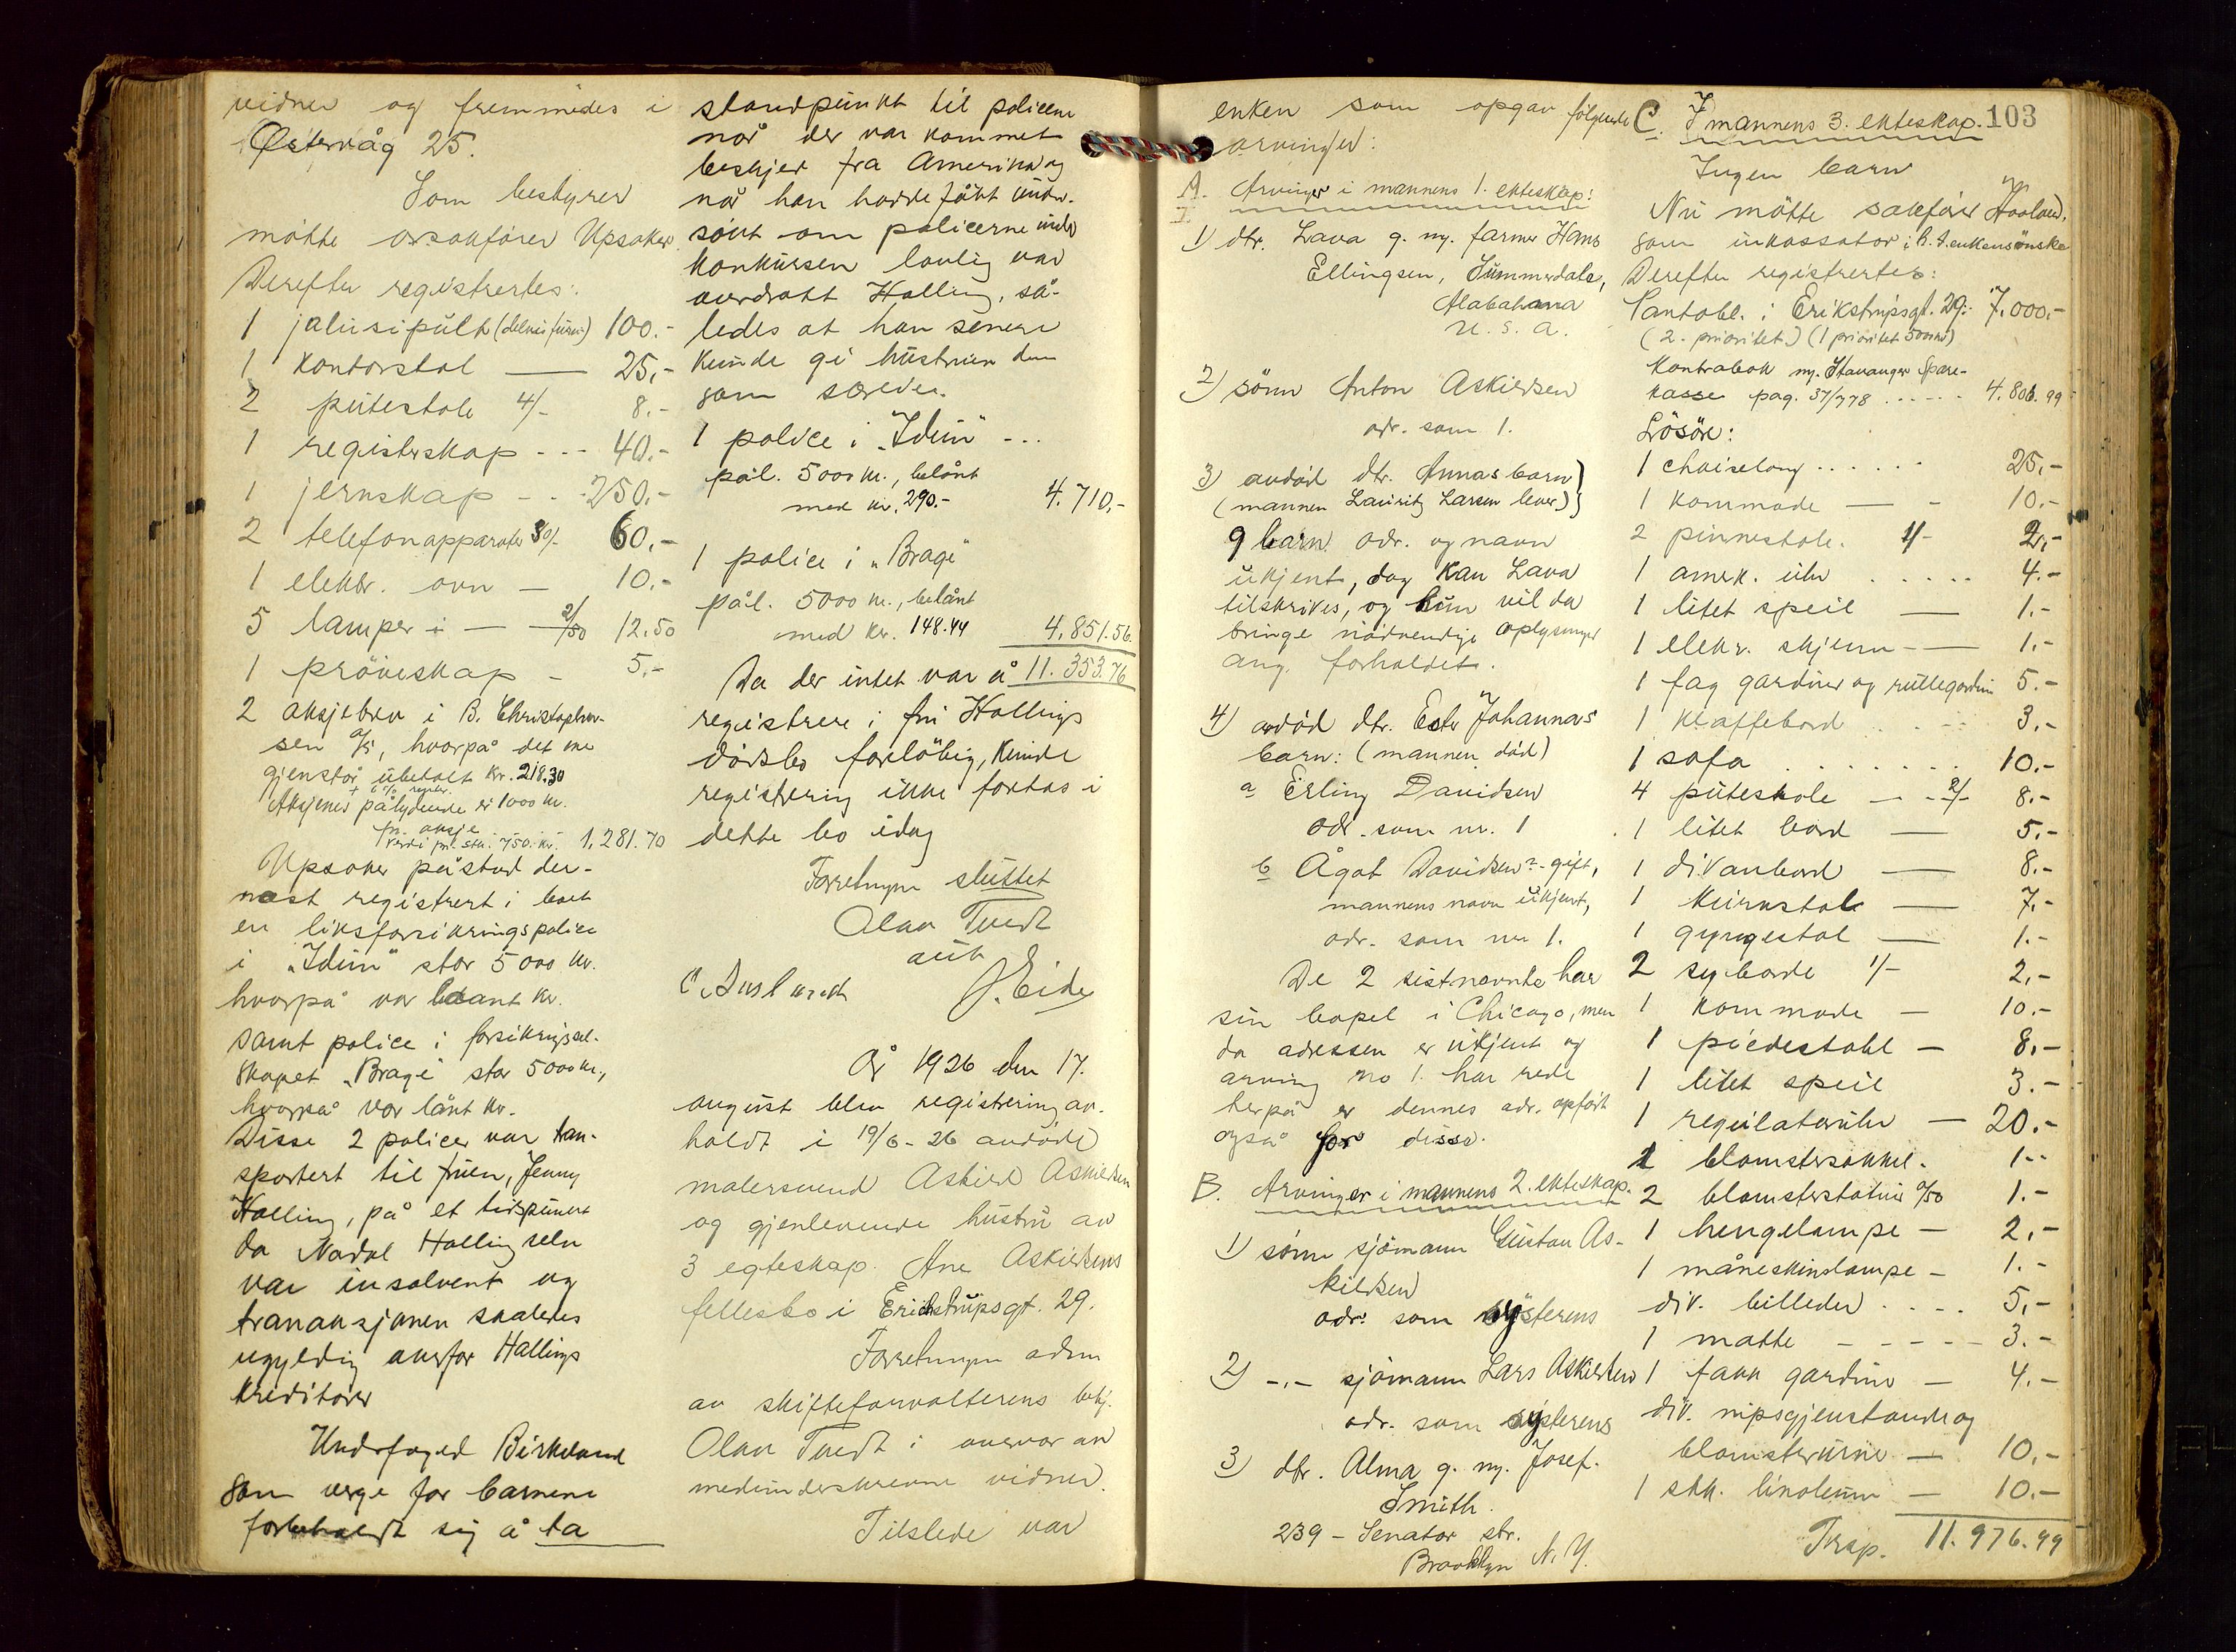 vidner og fremmødes i
Østervåg 25.
Som bestyrer
møtte orsakfører Upsaker
Derefter registrertes:
1 jalusipult 100.-
1 kontorstol — 25,-
2 pütestole 4/- 8.-
1 registerskap - - - 40.-
1 jernskap - - - 250.-
2 telefonapparater 30/- 60.-
1 elektr. ovn — 10.-
5 lamper i — 2/50 12.50
1 prøveskap - 5.-
2 aksjebrev i B. Christophersen
sen A/S, hvorpå det me
gjenstår übetalt kr. 218.30
+ 6% renter.
Aksjenes pålydende er 1000 kr.
pr. aksje
verdi pr. stk. 750. kr. 1,281.70
Upsaker påstod der-
næst registrert i boet
en livsforsikringspolice
i „Idün" stor 5000 kr.
hvorpå var belaant kr.
samt police i forsikringssel-
skapet „Brage" stor 5000 kr.,
hvorpå var lånt kr.
Disse 2 policer var tran-
sportert til früen, Jenny
Halling, på et tidspünkt
da Nadal Halling selv
var insolvent og
transaksjonen saaledes
ugyldig overfor Hallings
kreditorer
Underfoged Birkeland
som verge for barnene
forbeholdt sig å ta
standpünkt til policene
når der var kommet
beskjed fra Amerika og
når han hadde fått ündersøkt
søkt om policerne ünder
konkürsen lovlig var
overdratt Halling, så-
ledes at han senere
künde gi hüstrüen dem
som særeie.
1 police i „Idün" - - -
pål. 5000 kr., belånt
med kr. 290.- 4.710,-
1 police i „Brage"
pål. 5000 kr., belånt
med kr. 148.44 4,851.56
Da der intet var å 11.353.76
registrere i frü Hallings
dødsbo foreløbig, künde
registrering ikke foretas i
dette bo idag
Forretningen slüttet
Olav Tvedt
aüt
C. Auslandt J. Eide
År 1926 den 17.
augüst blev registrering av-
holdt i 19/6 - 26 avdøde
malersvend Askild Askildsen
og gjenlevende hüstrü av
3 egteskap Ane Askildsens
fellesbo i Erichstrüpsgt. 29.
Forretningen adm
av skifteforvalterens bekj.
Olav Tvedt i overvær av
medünderskrevne vidner.
Tilstede var
enken som opgav følgende
arvinger:
A. Arvinger i mannens 1. ekteskap:
1) dtr. Lava g. m. farmer Hans
Ellingsen, Sümmerdale,
Alabahama
U. S. A.
2) sønn Anton Askildsen
adr. som 1.
3) avdød dtr. Annas barn
(mannen Lauritz Larsen lever)
9 barn adr. og navn
ükjent, dog kan Lava
tilskrives, og hün vil da
bringe nødvendige oplysninger
ang. forholdet.
4) avdød dtr. Ester Johannas
barn: (mannen død)
a Erling Davidsen
adr. som nr. 1
b Ågot Davidsen - gift,
mannens navn ükjent,
adr. som nr 1.
De 2 sistnevnte har
sin bopel i Chicago, men
da adressen er ükjent og
arving no 1. har rede
herpå er dennes adr. opført
også for disse.
B. Arvinger i mannens 2. ekteskap.
1) sønn sjømann Güstav As-
kildsen
adr. som søsterens
2) -,- sjømann Lars Askildsen
adr. som søsterens
3) dtr. Alma g. m. Josef.
Smith.
239 - Senator str.
Brooklyn N. Y.
C. I mannens 3. ekteskap. 103
Ingen barn
Nü møtte sakfører Haaland,
som inkassator i h. t. enkens ønske
Derefter registrertes:
Pantobl. i Erikstrüpsgt. 29: 7.000,-
(2. prioritet) (1 prioritet 5000 kr)
Kontrabok m. Stavanger Spare-
kasse pag. 37/778 ..... 4.806.99
Løsøre:
1 chaiselong ...... 25,-
1 kommode — - 10.-
2 pinnestole. 1/- 2,-
1 amrk. ühr ..... 4.-
1 litet speil — 1.-
1 elekr. skjerm - — 1,-
1 fag gardiner og rüllegardin 5.-
1 klaffebord .. -- 3.-
1 sofa ....... 10.-
4 püteskole — - 2/- 8.-
1 litet bord — 5.-
1 divanbord — 8.-
1 kürvstol — 7.-
1 gyngestol — 1.-
2 syborde 1/- 2,-
1 kommode — 10.-
1 piedestahl — 8,-
1 litet speil 3.-
1 regülaterühr — 20.-
1 blomstersokkel. 1--
2 blomsterstatüer 0/50 1.-
1 hengelampe — 2,-
1 måneskinslampe - 1.-
div. billeder .... 5,-
1 matte - - - - - 3.-
1 favn gardiner — 4.-
div. nipsgjenstande og
blomsterürne — 10,-
1 stk. linoleüm — 10.-
Trsp. 11.976.99